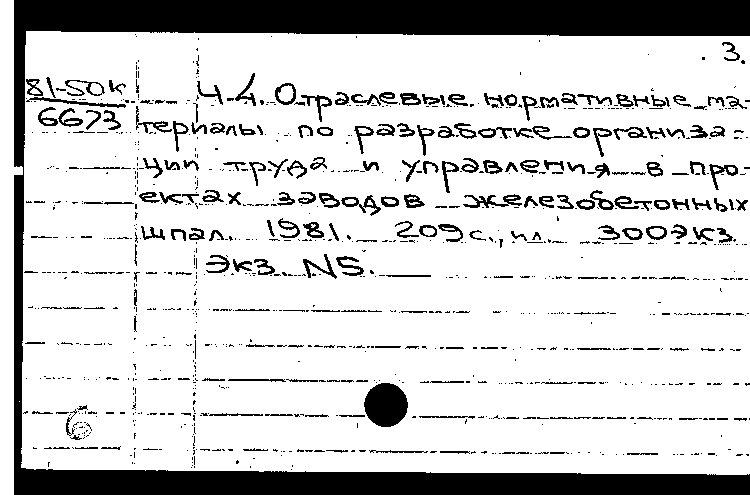 3.
81-50к
6673
Ч.4. Отраслевые нормативные ма-
териалы по разработке организа-
ции труда и управления в про-
ектах заводов железобетонных
шпал. 1981. 209 с., ил. 300 экз
Экз. N5.
6